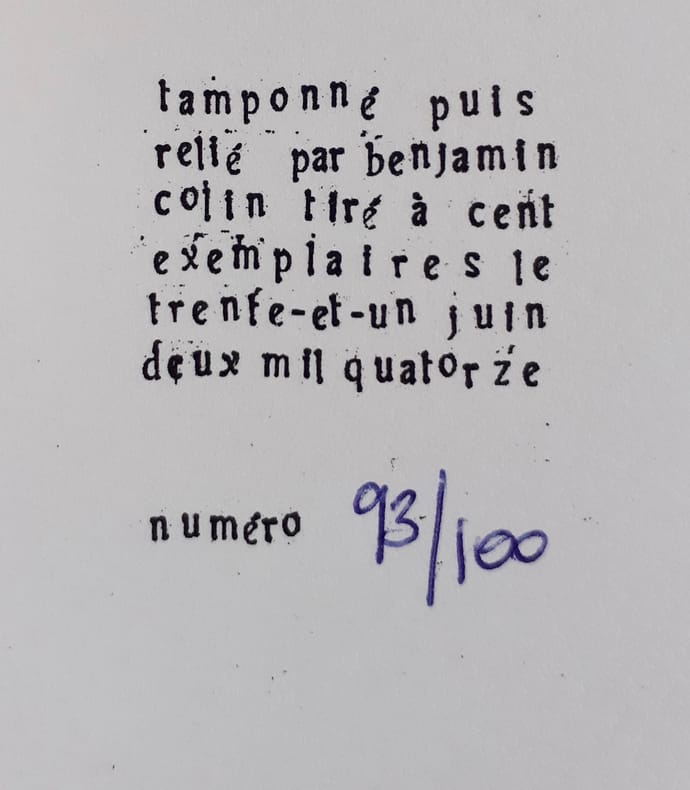 tamponné puis
relié par benjamin
colin tiré à cent
exemplaires le
trente-et-un juin
deux mil quatorze
numéro 93/100